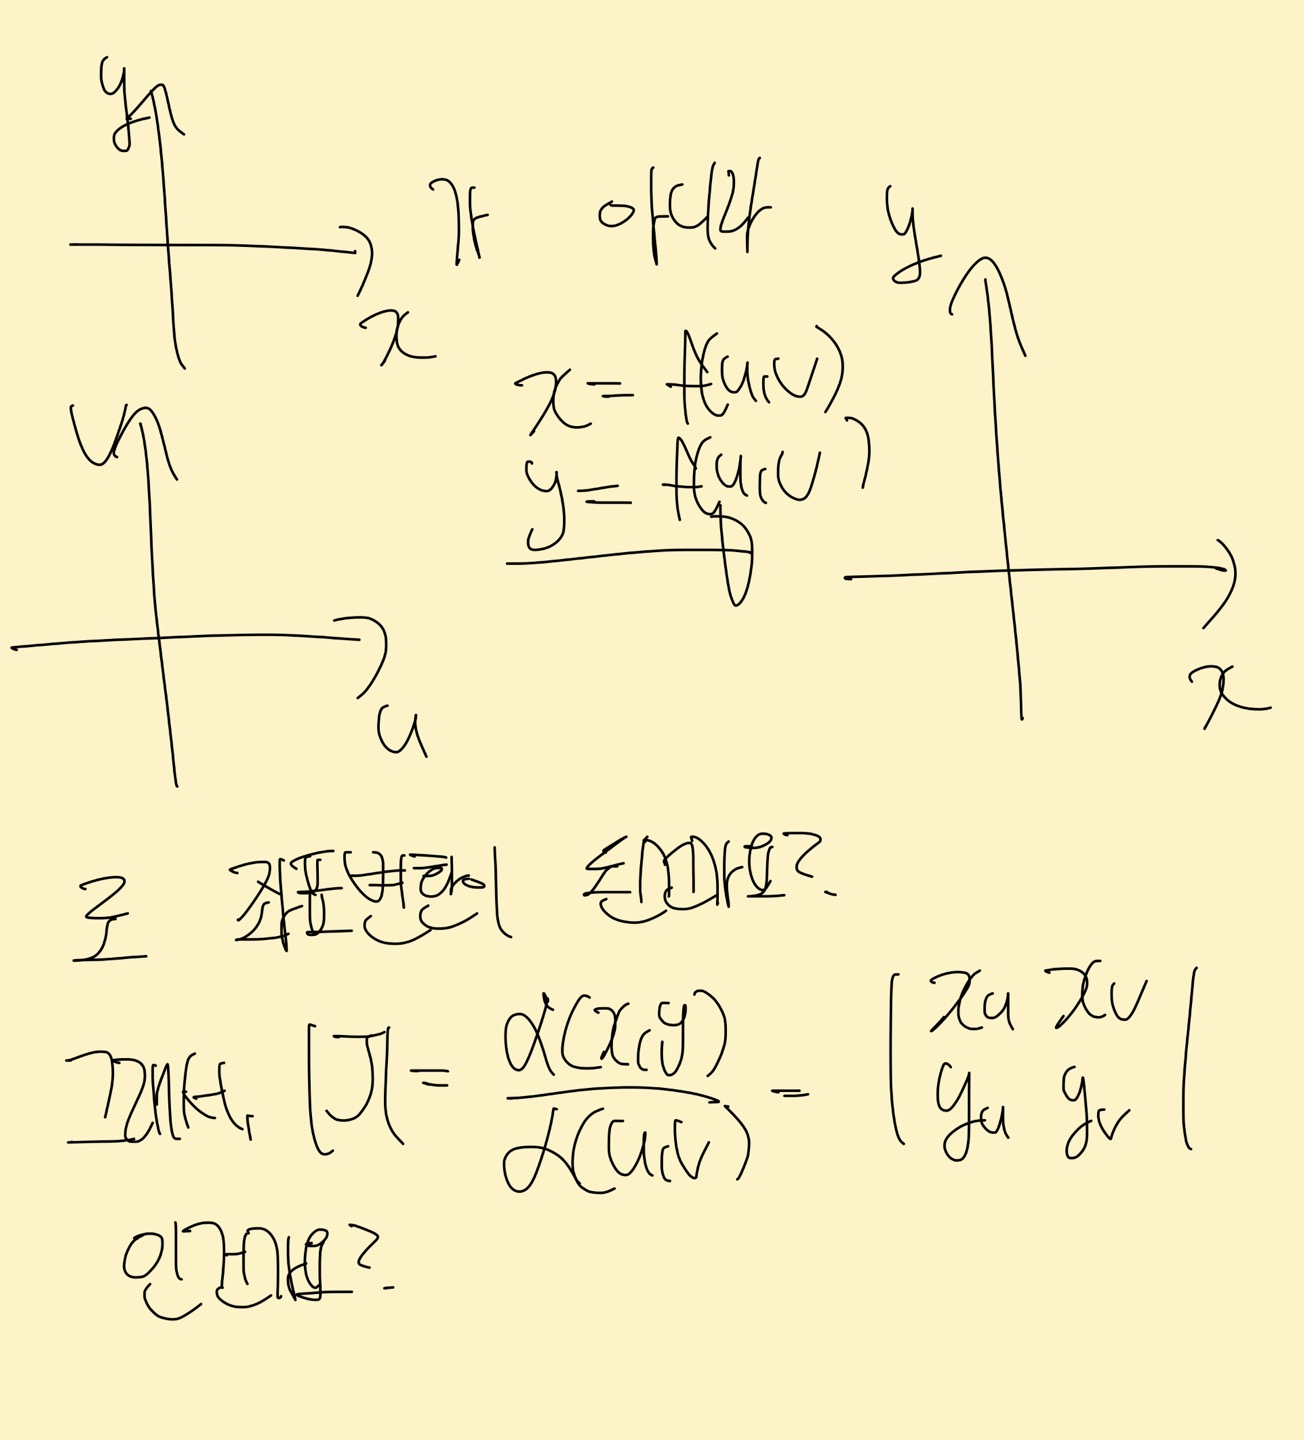 y
x
가 아니라
y
x = f(u,v)
y = f(u,v)
v
u
x
로 좌표변환이 된다요?
그래서, |J| = ∂(x,y) / ∂(u,v) = | xu xv |
| yu yv |
인건가요?